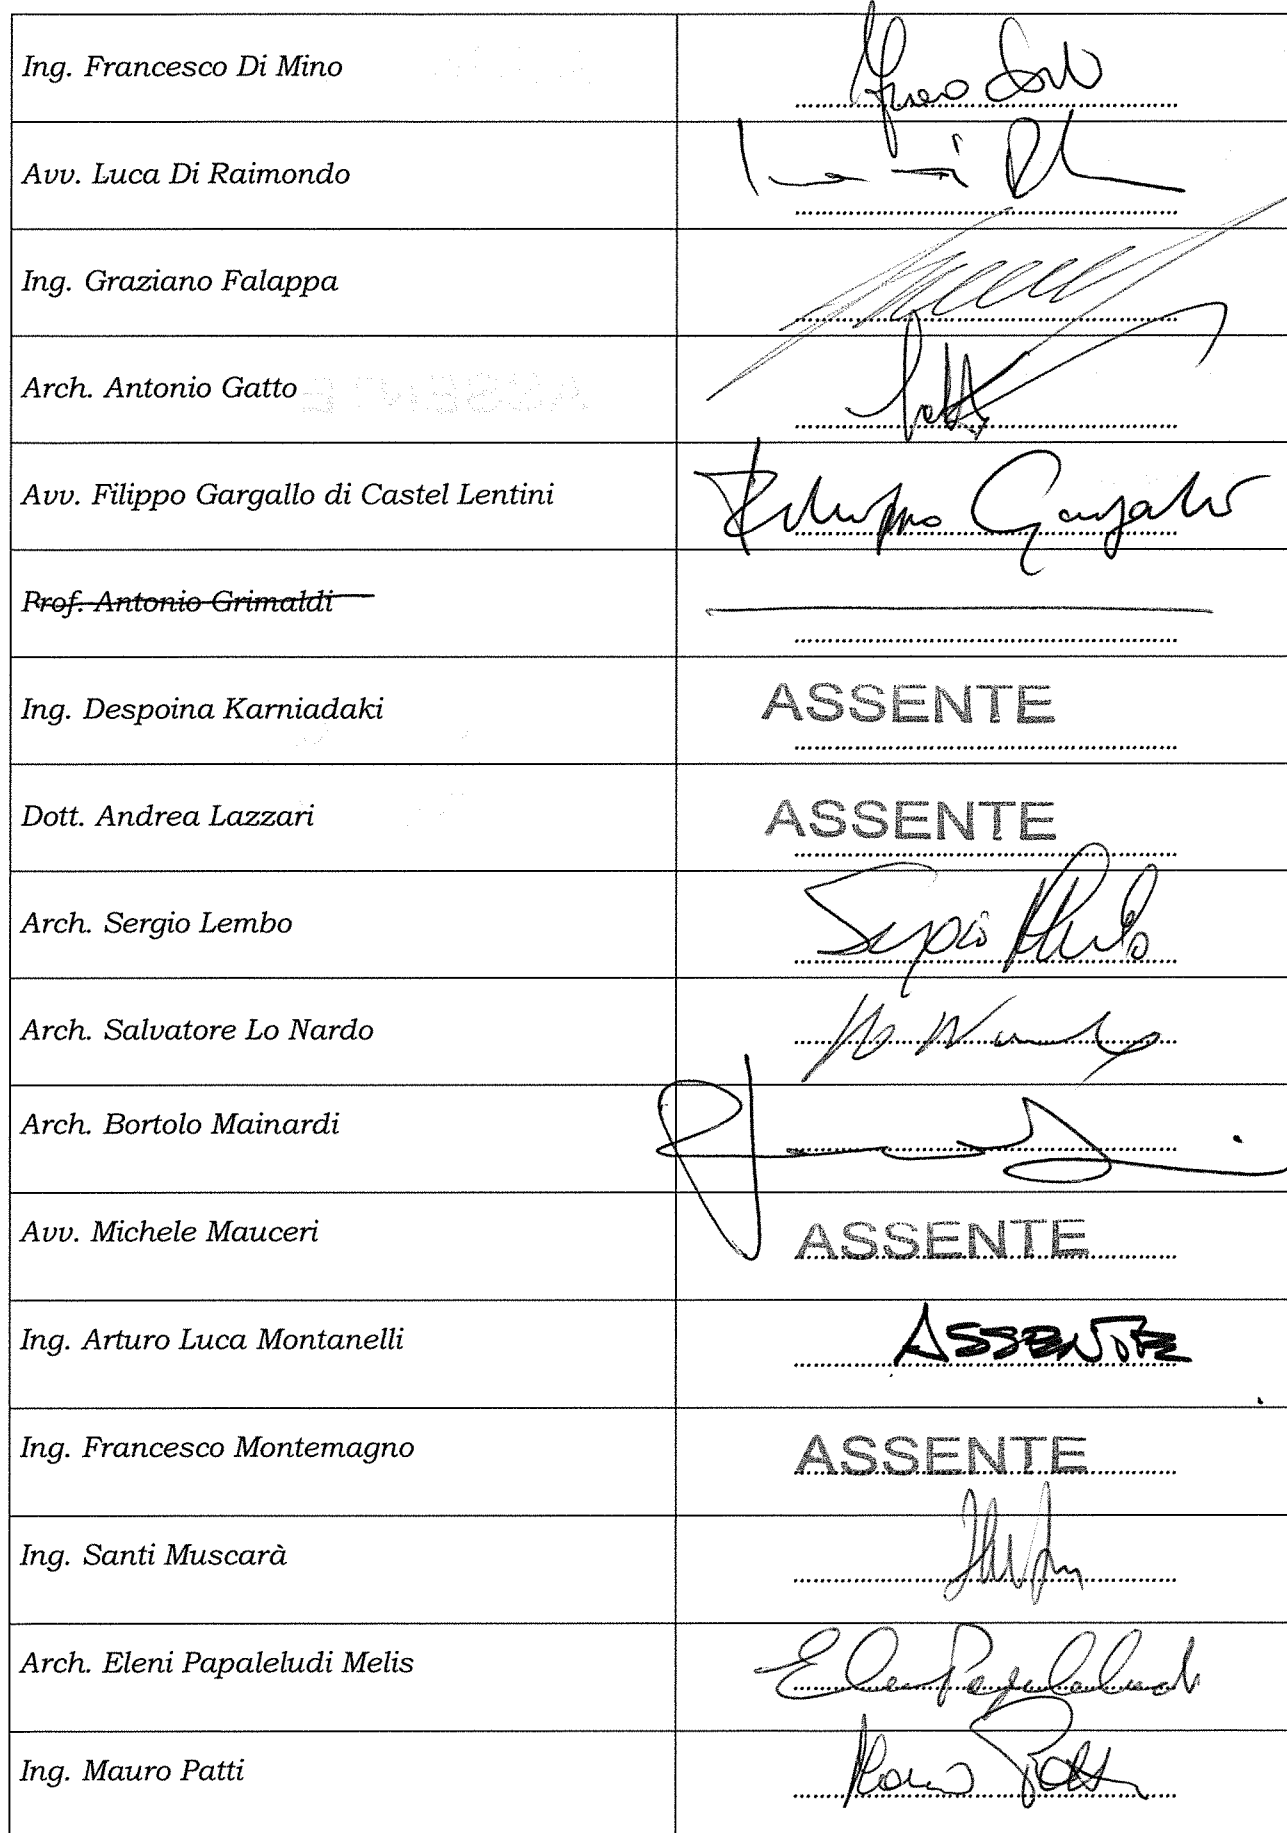 Ing. Francesco Di Mino
Avv. Luca Di Raimondo
Ing. Graziano Falappa
Arch. Antonio Gatto
Avv. Filippo Gargallo di Castel Lentini
Filippo Gargallo
Prof. Antonio Grimaldi
Ing. Despoina Karniadaki
ASSENTE
Dott. Andrea Lazzari
ASSENTE
Arch. Sergio Lembo
Arch. Salvatore Lo Nardo
Arch. Bortolo Mainardi
Avv. Michele Mauceri
ASSENTE
Ing. Arturo Luca Montanelli
ASSENTE
Ing. Francesco Montemagno
ASSENTE
Ing. Santi Muscarà
Arch. Eleni Papaleludi Melis
Ing. Mauro Patti